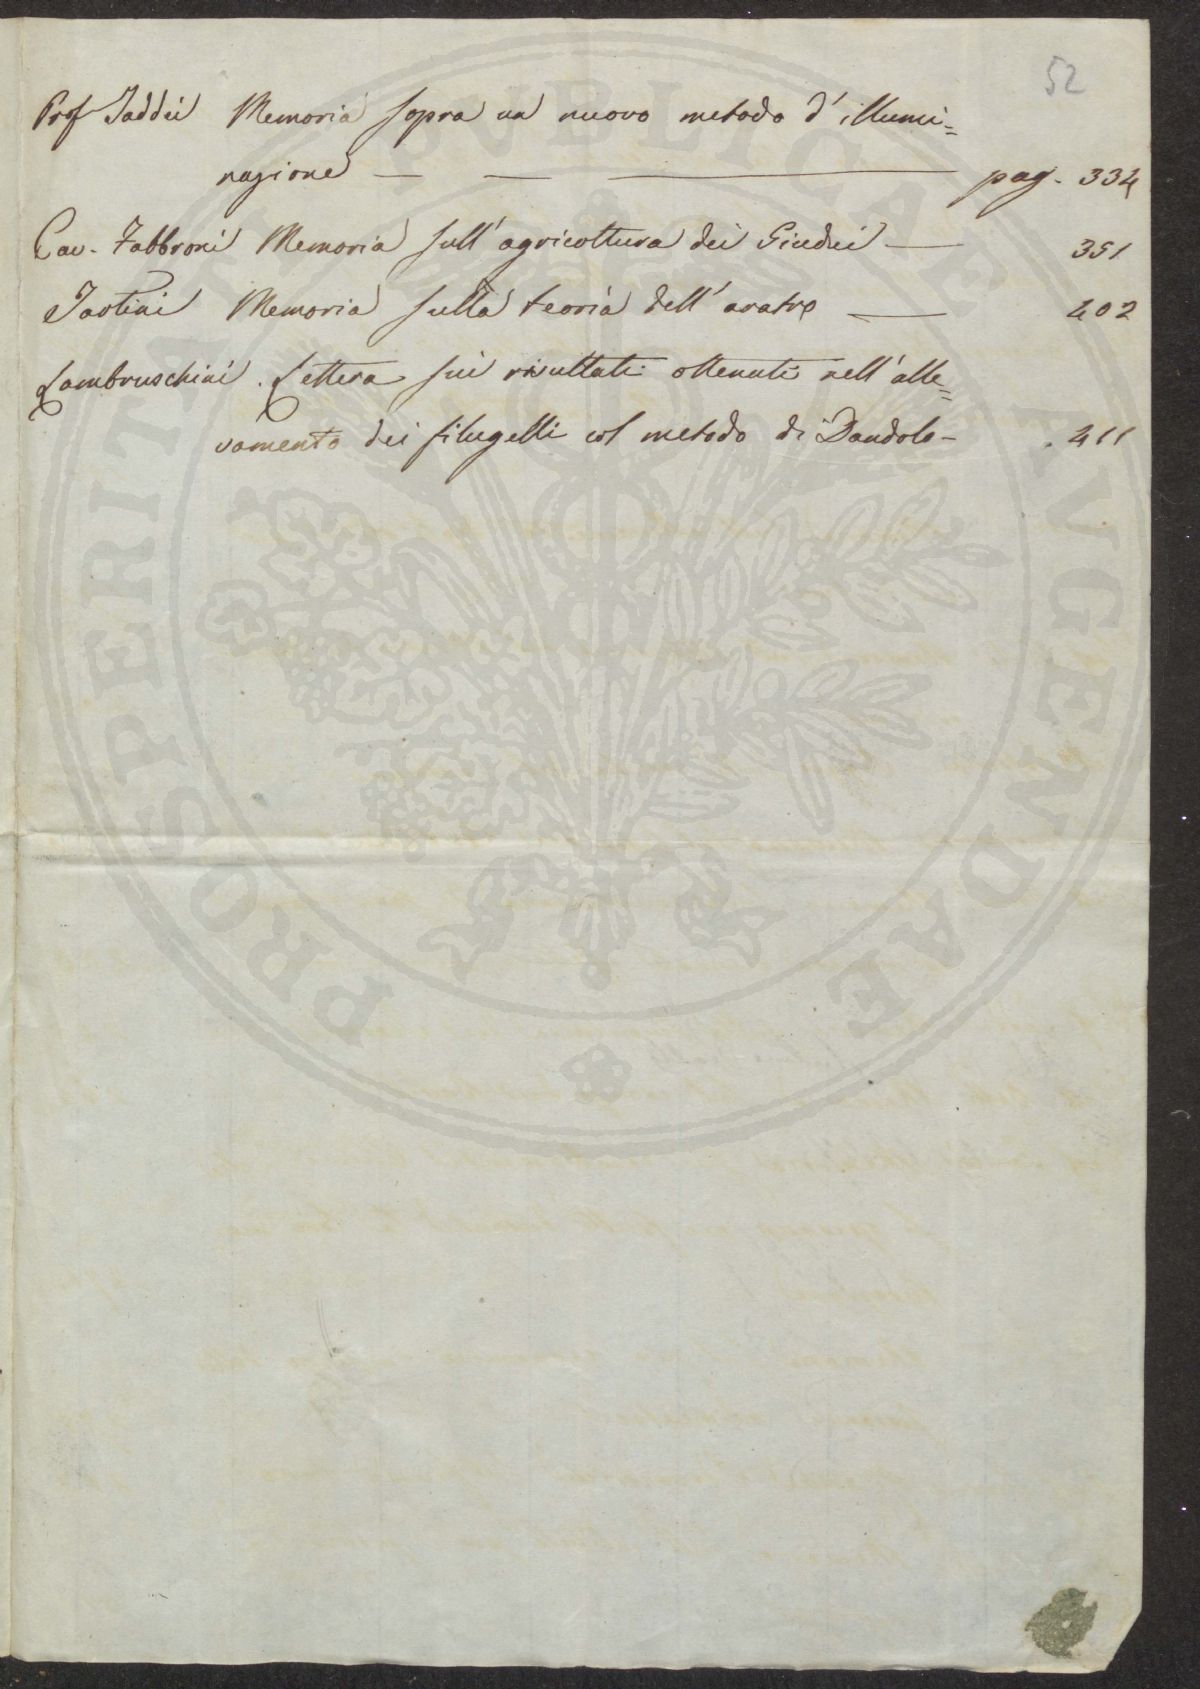 52
Prof Taddei Memoria sopra un nuovo metodo d'illumi=
nazione — — — pag. 334
Cav. Fabbroni Memoria sull'agricoltura dei Giudei — 351
Paolini Memoria sulla teoria dell'aratro — 402
Lambruschini. Lettera sui risultati ottenuti nell'alle=
vamento dei filugelli col metodo di Dandolo - 411
PROSPERITATI PVBLICAE AVGENDAE